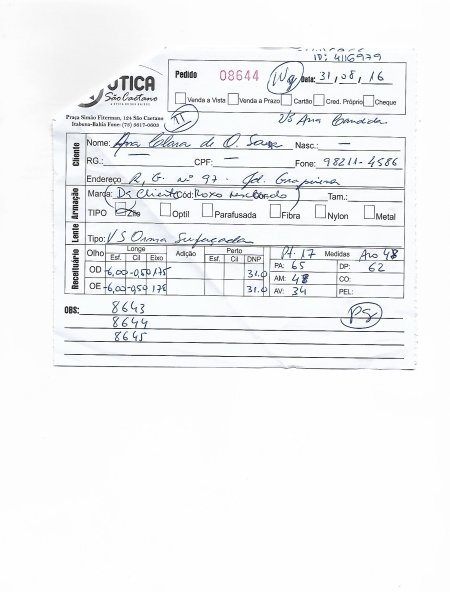 ID: 4116979
ÓTICA
São Caetano
Pedido 08644 Wg Data: 31, 08, 16
Venda a Vista Venda a Prazo Cartão Cred. Próprio Cheque
Praça Simão Fiterman, 124 São Caetano
Itabuna-Bahia Fone: (73) 3617-0603
II
Cliente
Nome: Ana Clara de O. Nasc.: —
RG.: — CPF: — Fone: 98211-4586
Endereço: R, G. nº 97. Jd. Grapiúna
Armação
Marca: Da Cliente Cód: Roxo Tam.:
TIPO Zilo Optil Parafusada Fibra Nylon Metal
Lente
Tipo: VS Orma Surfaçada
Receituário
Olho Longe Adição Perto Pt. 17 Medidas Aro 48
Esf. Cil Eixo Esf. Cil DNP PA: 65 DP: 62
OD -6,00 -0,50 175 31.0 AM: 48 CO:
OE -6,00 -0,50 175 31.0 AV: 34 PEL:
OBS: 8643
8644
8645
PG